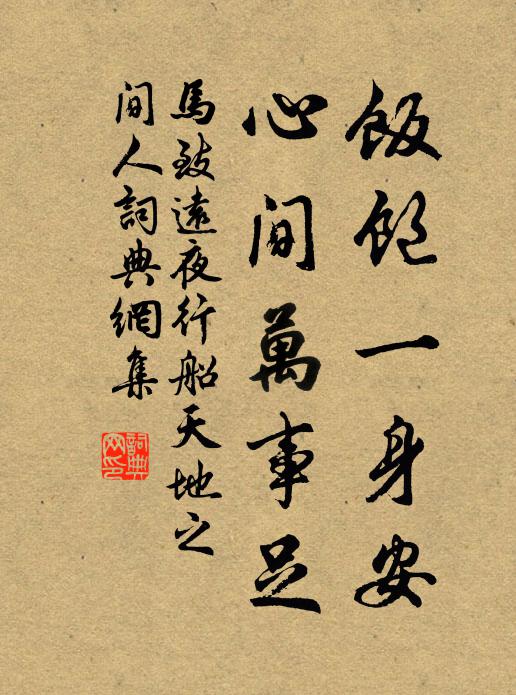 飯飽一身安
心閒萬事足
馬致遠夜行船天地之
閒人詞典網集
詞典网印